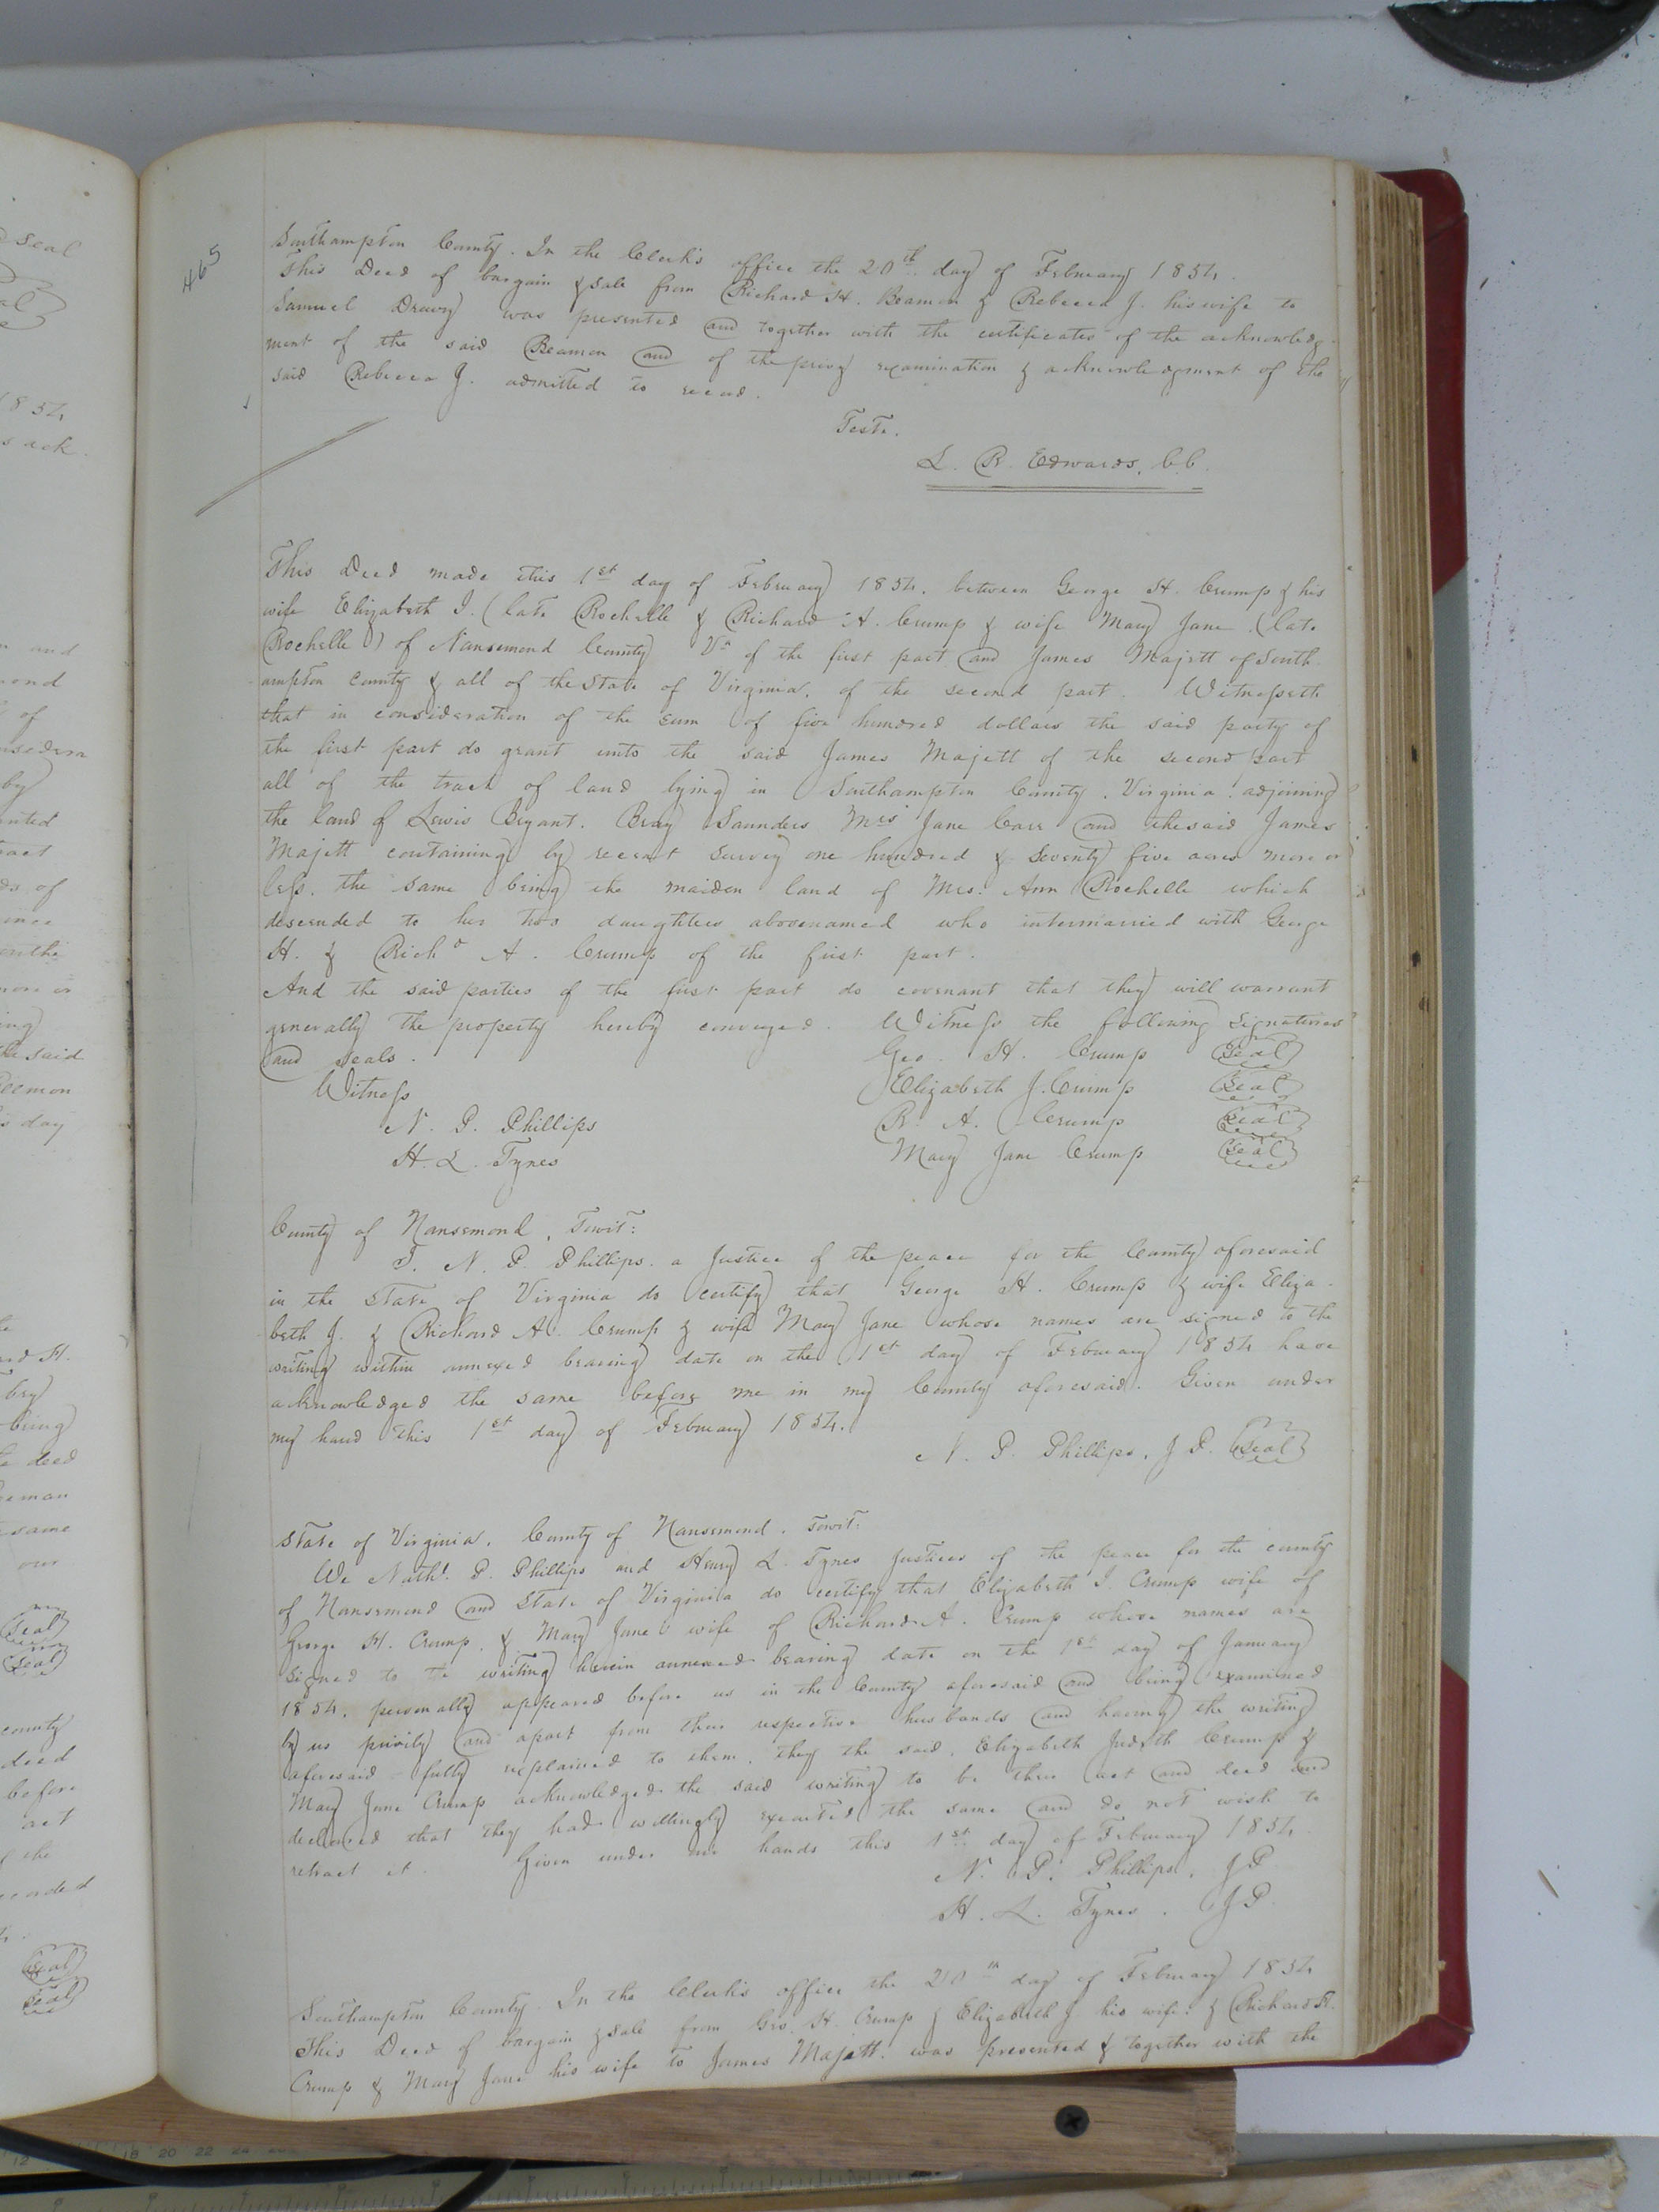 465
Southampton County. In the Clerk's office the 20th day of February 1854.
This Deed of bargain & sale from Richard H. Beamon & Rebecca J. his wife to
Samuel Drewry was presented and together with the certificates of the acknowledg-
ment of the said Beamon and of the privy examination & acknowledgment of the
said Rebecca J. admitted to record.
Teste.
L. R. Edwards, C.C.
This Deed made this 1st day of February 1854. between George H. Crump & his
wife Elizabeth J. (late Rochelle & Richard A. Crump & wife Mary Jane (late
Rochelle) of Nansemond County Va of the first part and James Majett of South-
ampton County & all of the State of Virginia, of the second part. Witnesseth
that in consideration of the sum of five hundred dollars the said party of
the first part do grant unto the said James Majett of the second part
all of the tract of land lying in Southampton County, Virginia, adjoining
the land of Lewis Bryant. Bray Saunders Mrs Jane Carr and the said James
Majett containing by recent survey one hundred & seventy five acres more or
less. the same being the maiden land of Mrs. Ann Rochelle which
descended to her two daughters abovenamed who intermarried with George
H. & Richd A. Crump of the first part.
And the said parties of the first part do covenant that they will warrant
generally the property hereby conveyed. Witness the following signatures
and seals. Geo. H. Crump Seal
Witness Elizabeth J. Crump Seal
N. P. Phillips R. A. Crump Seal
H. L. Tynes Mary Jane Crump Seal
County of Nansemond, Towit:
I. N. P. Phillips. a Justice of the peace for the County aforesaid
in the State of Virginia do certify that George H. Crump & wife Eliza-
beth J. & Richard A. Crump & wife Mary Jane whose names are signed to the
writing within annexed bearing date on the 1st day of February 1854 have
acknowledged the same before me in my County aforesaid. Given under
my hand this 1st day of February 1854.
N. P. Phillips, J P. Seal
State of Virginia, County of Nansemond, Towit:
We Nathl. P. Phillips and Henry L. Tynes Justices of the peace for the county
of Nansemond and State of Virginia do certify that Elizabeth J. Crump wife of
George H. Crump, & Mary Jane wife of Richard A. Crump whose names are
signed to the writing herein annexed bearing date on the 1st day of January
1854, personally appeared before us in the County aforesaid and being examined
by us privily and apart from their respective husbands and having the writing
aforesaid fully explained to them, they the said, Elizabeth Judith Crump &
Mary Jane Crump acknowledged the said writing to be their act and deed and
declared that they had willingly executed the same and do not wish to
retract it. Given under our hands this 1st day of February 1854.
N. P. Phillips, J P
H. L. Tynes. J P
Southampton County. In the Clerk's office the 20th day of February 1854
This Deed of bargain & sale from Geo. H. Crump & Elizabeth J. his wife. & Richard A.
Crump & Mary Jane his wife to James Majett. was presented & together with the